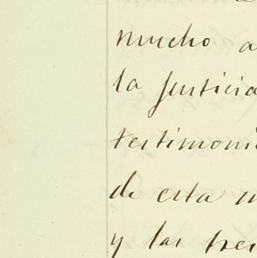 mucho a
la justicia
testimoni
de esta
y las trei